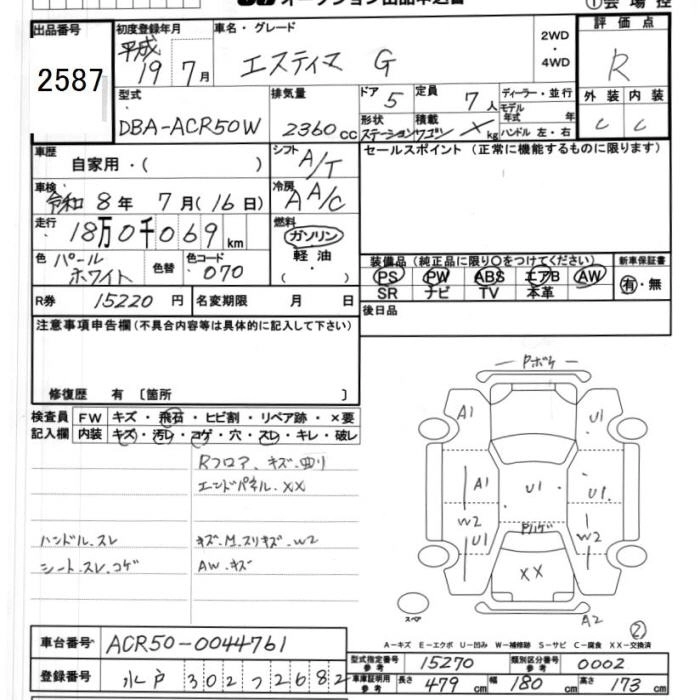 オークション出品申込書 ①会場控
出品番号 初度登録年月 車名・グレード 評価点
2587 平成 19 7月 エスティマ G 2WD・4WD R
型式 排気量 ドア 5 定員 7人 ディーラー・並行 外装 内装
DBA-ACR50W 2360cc 形状 ステーションワゴン 積載 ×kg モデル年式 年 ハンドル 左・右 C C
車歴 自家用・( ) シフト A/T セールスポイント (正常に機能するものに限ります)
車検 令和 8年 7月(16日) 冷房 AA/C
走行 18万0千069km 燃料 ガソリン 軽油 ( ・ )
色 パールホワイト 色替 色コード 070 装備品 (純正品に限り○をつけてください) 新車保証書
PS PW ABS エアB AW 有・無
SR ナビ TV 本革
R券 15220円 名変期限 月 日 後日品
注意事項申告欄 (不具合内容等は具体的に記入して下さい)
修復歴 有 〔箇所 〕
検査員記入欄 FW キズ・飛石・ヒビ割・リペア跡・×要
内装 キズ・汚レ・コゲ・穴・スレ・キレ・破レ
Rフロア、キズ・曲り
エンドパネル・XX
ハンドル・スレ キズ・M・スリキズ・W2
シート・スレ・コゲ AW・キズ
Pボケ
A1 U1
A1 U1 U1
W2 Pハゲ W2
U1 U1
XX
スペア A2 ②
A-キズ E-エクボ U-凹み W-補修跡 S-サビ C-腐食 XX-交換済
車台番号 ACR50-0044761
登録番号 水戸 302つ2682
型式指定番号 参考 15270 類別区分番号 参考 0002
車庫証明用 参考 長さ 479cm 幅 180cm 高さ 173cm